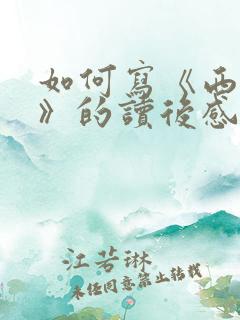 如何寫《西
》的讀後感
江若琳
未經同意禁止轉載